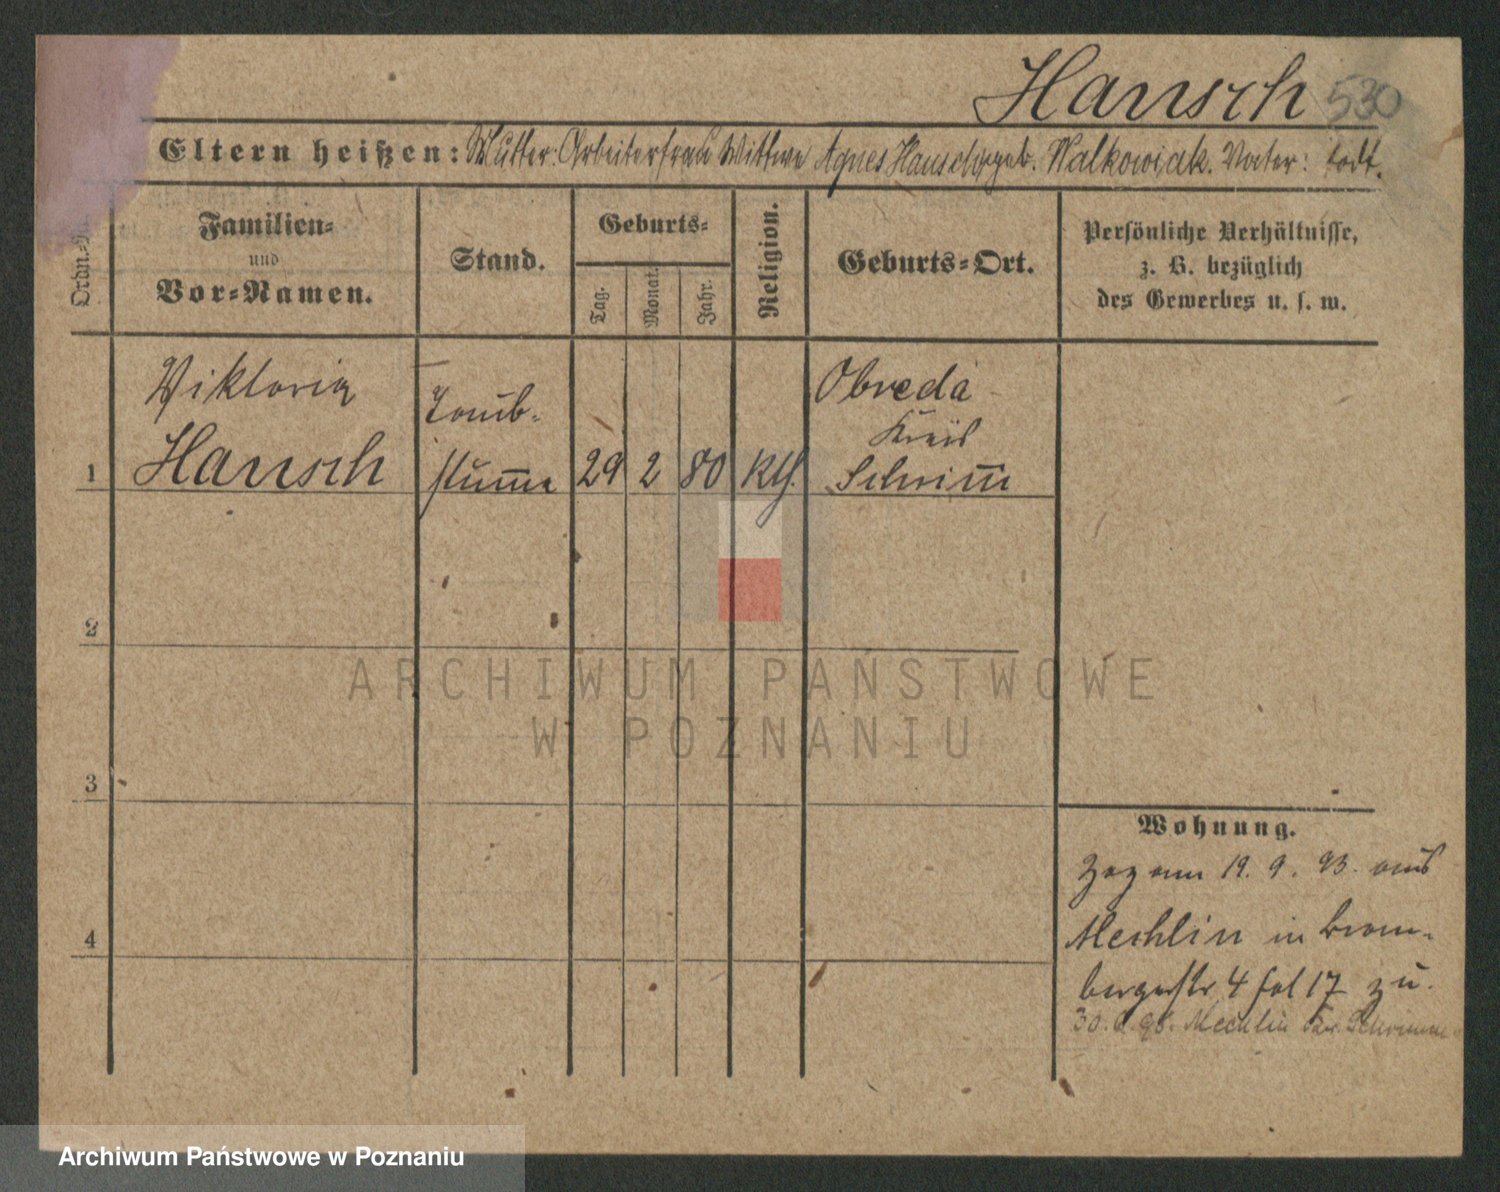 Hansch 530
Eltern heißen: Mutter: Arbeiterfrau Wittwe Agnes Hansch, geb. Walkowiak. Vater: todt.
Ordn.-N.
Familien-
und
Vor-Namen.
Stand.
Geburts-
Tag.
Monat.
Jahr.
Religion.
Geburts-Ort.
Persönliche Verhältnisse,
z. B. bezüglich
des Gewerbes u. s. w.
1
Viktoria
Hansch
Taub-
stumm
29 2 80 kth.
Kreis
Schrimm
2
3
4
Wohnung.
Zog am 19. 9. 93. aus
Mechlin in Brom-
bergerstr. 4 fol 17 zu.
Mechlin Kr. Schrimm
ARCHIWUM PAŃSTWOWE
W POZNANIU
Archiwum Państwowe w Poznaniu